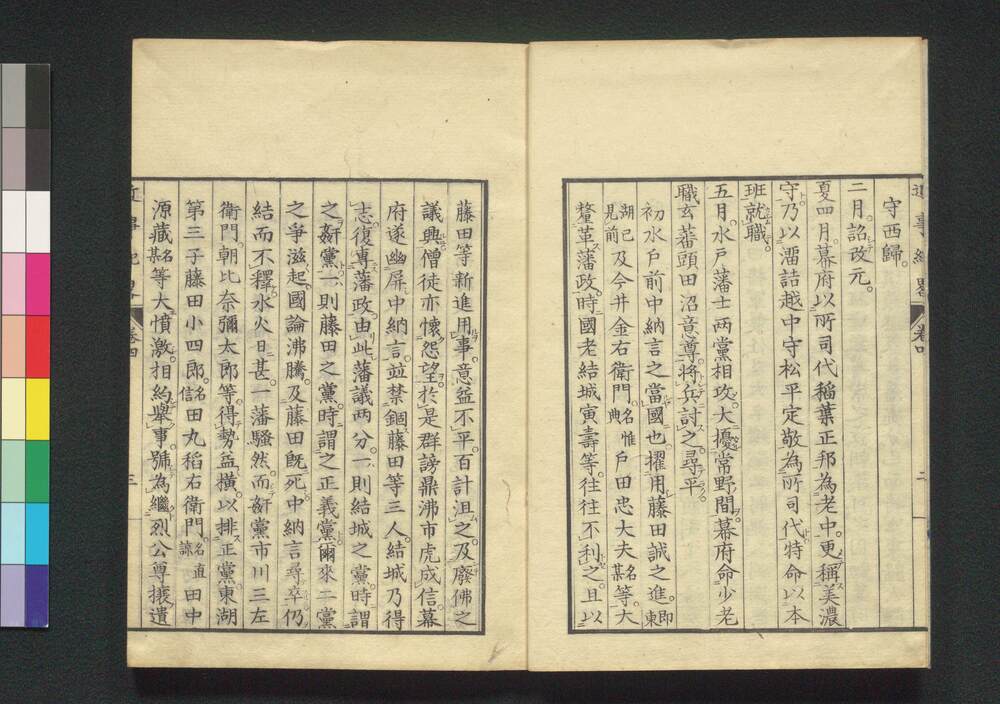 守西歸。
二月。詔改元。
夏四月。幕府以所司代稻葉正邦為老中。更稱美濃
守。乃以溜詰越中守松平定敬為所司代。特命以本
班就職。
五月。水戶藩士兩黨相攻。大擾常野間。幕府命少老
職玄蕃頭田沼意尊。將兵討之。尋平。
初水戶前中納言之當國也。擢用藤田誠之進。即東
湖已見前及今井金右衛門。名惟典戶田忠大夫名某等。大
釐革藩政。時國老結城寅壽等。往往不利之。且以
藤田等新進用事。意益不平。百計沮之。及廢佛之
議興。僧徒亦懷怨望。於是群謗鼎沸。市虎成信。幕
府遂幽屏中納言。竝禁錮藤田等三人。結城乃得
志。復專藩政。由此藩議兩分。一則結城之黨。時謂
之姦黨。一則藤田之黨。時謂之正義黨。爾來二黨
之爭滋起。國論沸騰。及藤田既死。中納言尋卒。仍
結而不釋。水火日甚。一藩騷然。而姦黨市川三左
衛門。朝比奈彌太郎等。得勢益橫。以排正黨。東湖
第三子藤田小四郎。名信田丸稻右衛門。名直諒田中
源藏名某等大憤激。相約舉事。號為繼烈公尊攘遺
近事紀略 卷四 三